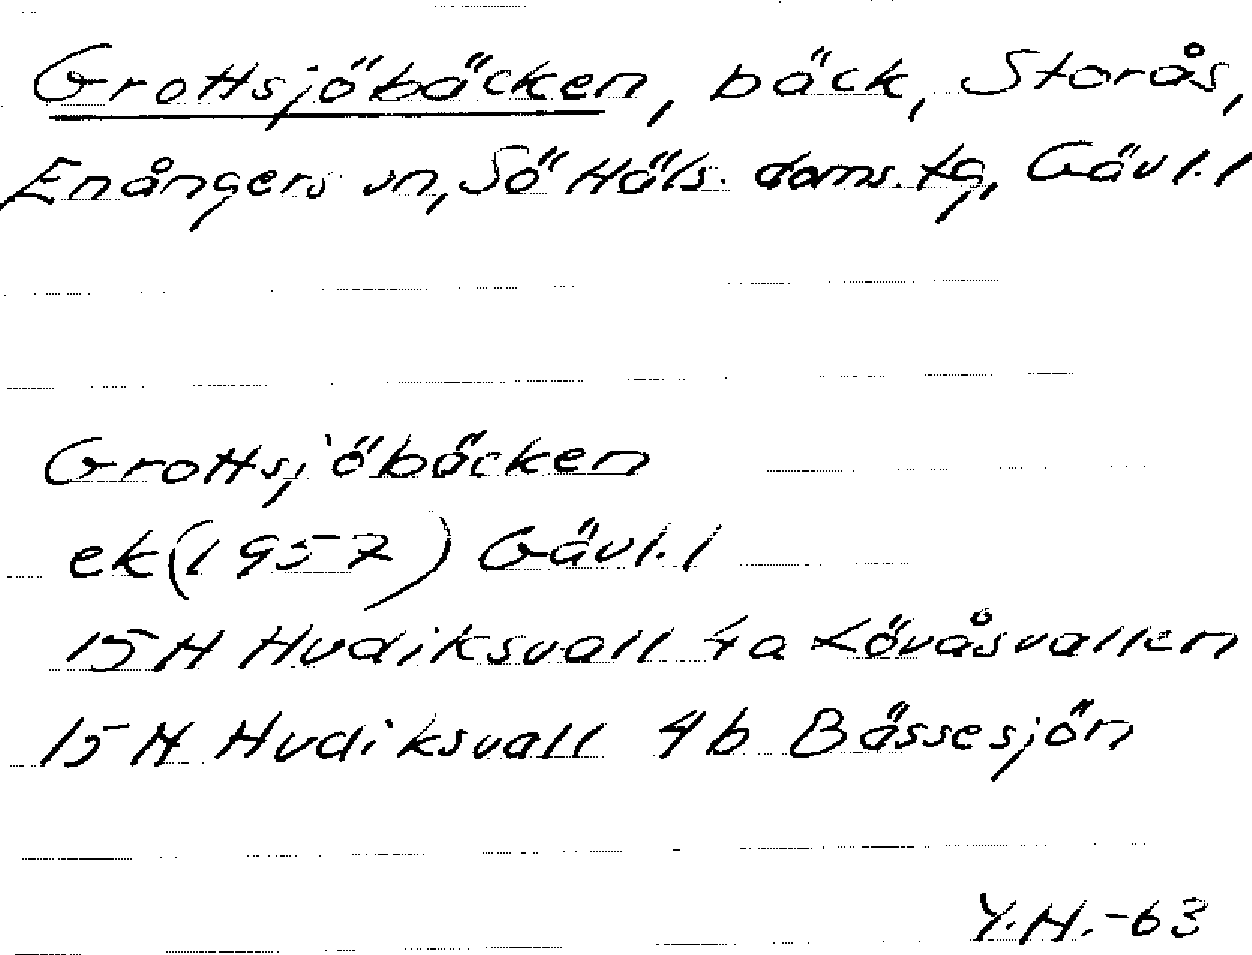 Grottsjöbäcken, bäck, Storås,
Enångers sn, Sö Häls. doms. tg, Gävl. l
Grottsjöbäcken
ek (1957) Gävl. l
15 H Hudiksvall 4a Lövåsvallen
15 H Hudiksvall 4b Bässesjön
Y.H.-63